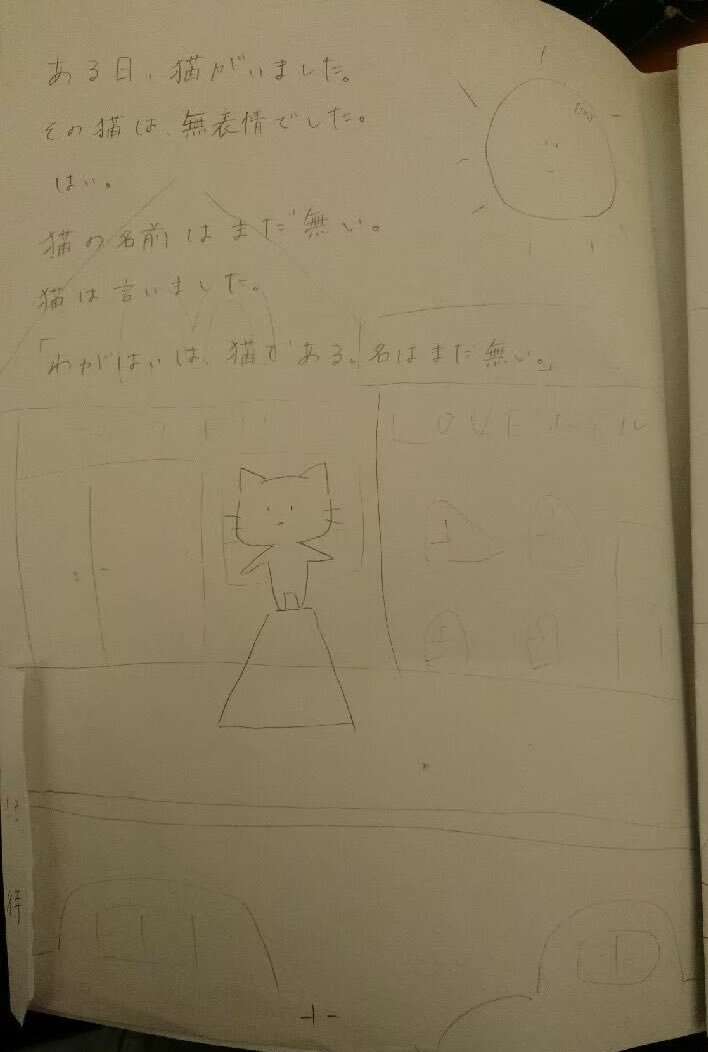 ある日、猫がいました。
その猫は、無表情でした。
はい。
猫の名前はまだ無い。
猫は言いました。
「わがはいは、猫である。名はまだ無い。」
LOVEホテル
!?
待
-1-